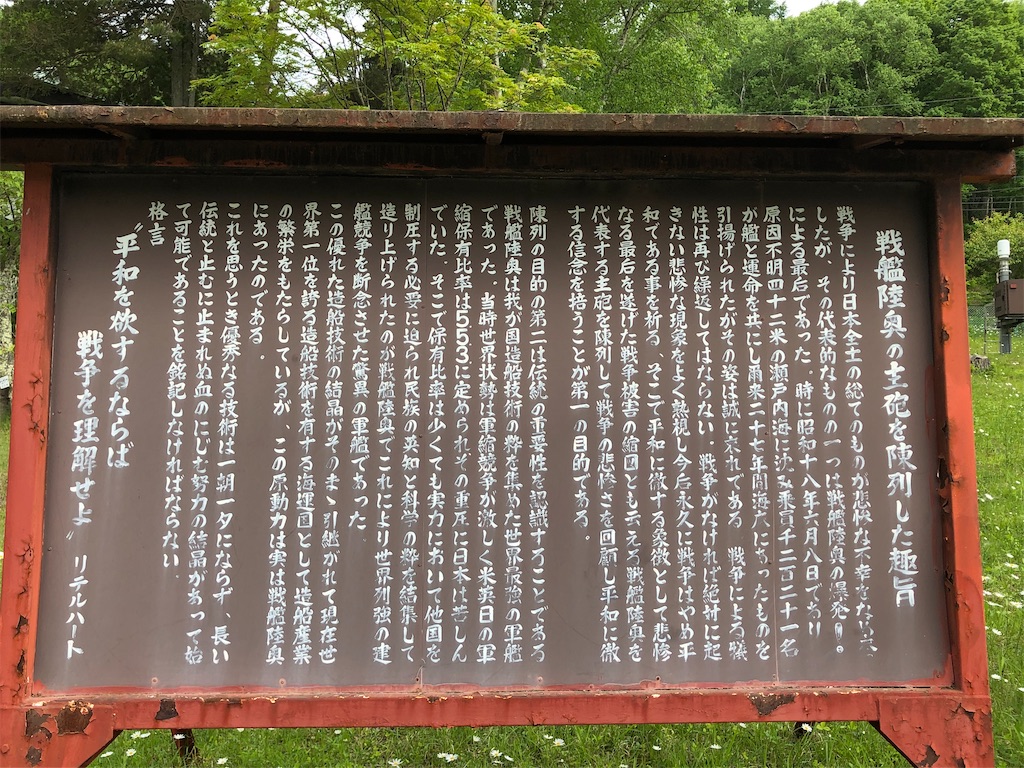 戦艦陸奥の主砲を陳列した趣旨
戦争により日本全土の総てのものが悲惨な不幸を
したが、その代表的なものの一つは戦艦陸奥の爆発
による最后であった。時に昭和十八年六月八日であり
原因不明四十二米の瀬戸内海に沈み乗員千二百二十一名
が艦と運命を共にし爾来二十七年間海底にあったものを
引揚げられたがその姿は誠に哀れである 戦争による犠
性は再び繰返してはならない 戦争がなければ絶対に起
きない悲惨な現象をよく熟視し今后永久に戦争はやめ平
和である事を祈る、そこで平和に徹する象徴として悲惨
なる最后を遂げた戦争被害の縮図とも云える戦艦陸奥を
代表する主砲を陳列して戦争の悲惨さを回顧し平和に徹
する信念を持つことが第一の目的である。
陳列の目的の第二は伝統の重要性を認識することである
戦艦陸奥は我が国造船技術の粋を集めた世界最強の軍艦
であった。当時世界状勢は軍縮競争が激しく米英日の軍
縮保有比率は5.5.3に定められその重圧に日本は苦しん
でいた、そこで保有比率は少くても実力において他国を
制圧する必要に迫られ民族の英知と科学の粋を結集して
造り上げられたのが戦艦陸奥でこれにより世界列強の建
艦競争を断念させた驚異の軍艦であった
この優れた造船技術の結晶がそのまゝ引継がれて現在世
界第一位を誇る造船技術を有する海運国として造船産業
の繁栄をもたらしているが、この原動力は実は戦艦陸奥
にあったのである。
これを思うとき優秀なる技術は一朝一夕にならず、長い
伝統と止むに止まれぬ血のにじむ努力の結晶があって始
て可能であることを銘記しなければならない.
格言
“平和を欲するならば
戦争を理解せよ” リデルハート